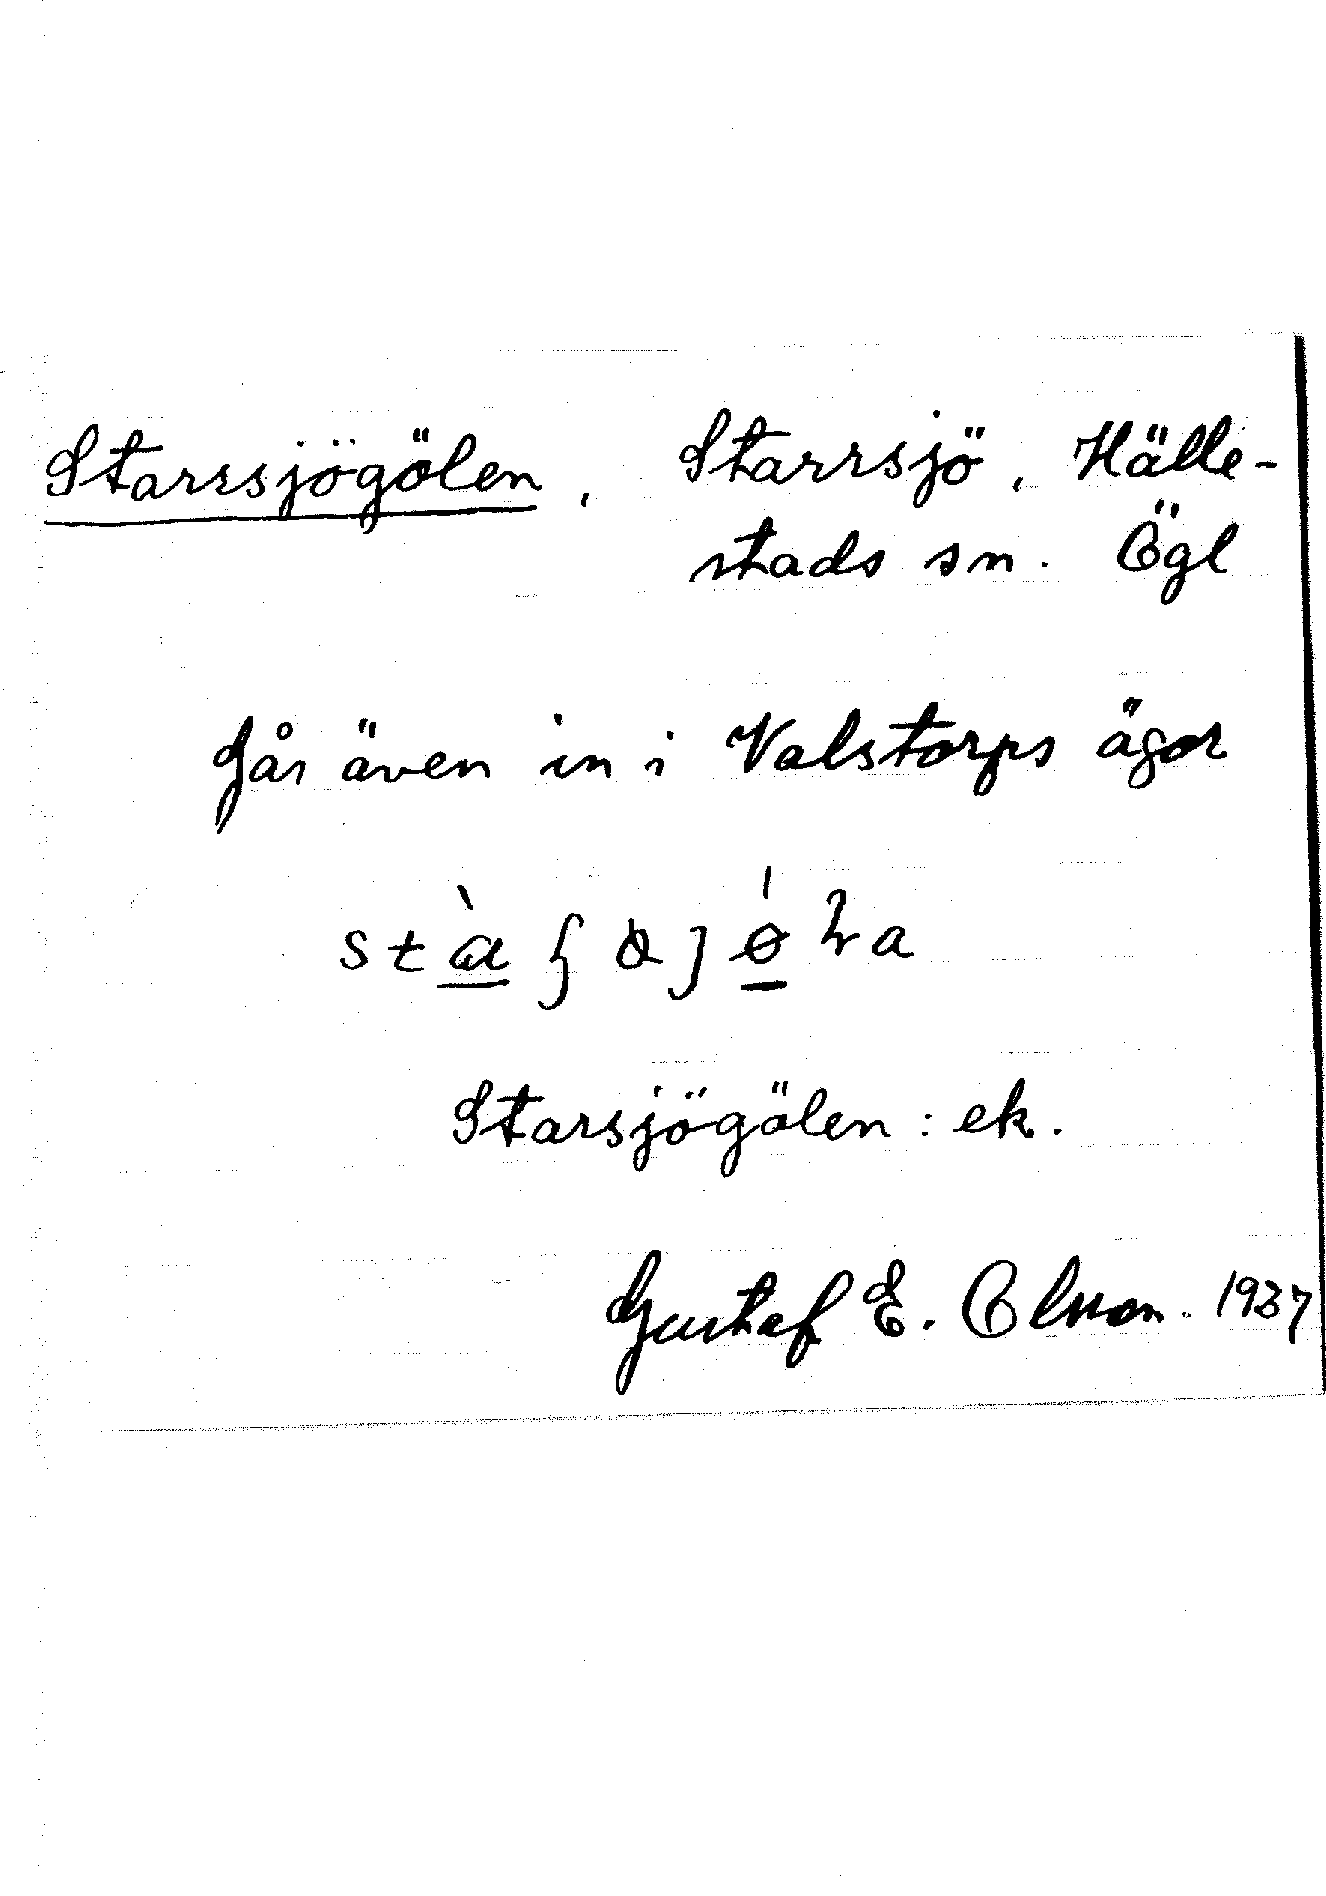 Starrsjögölen, Starrsjö, Hälle-
stads sn. Ögl
Går även in i Valstorps ägor
Starsjögölen: ek.
Gustaf E. Olsson. 1937